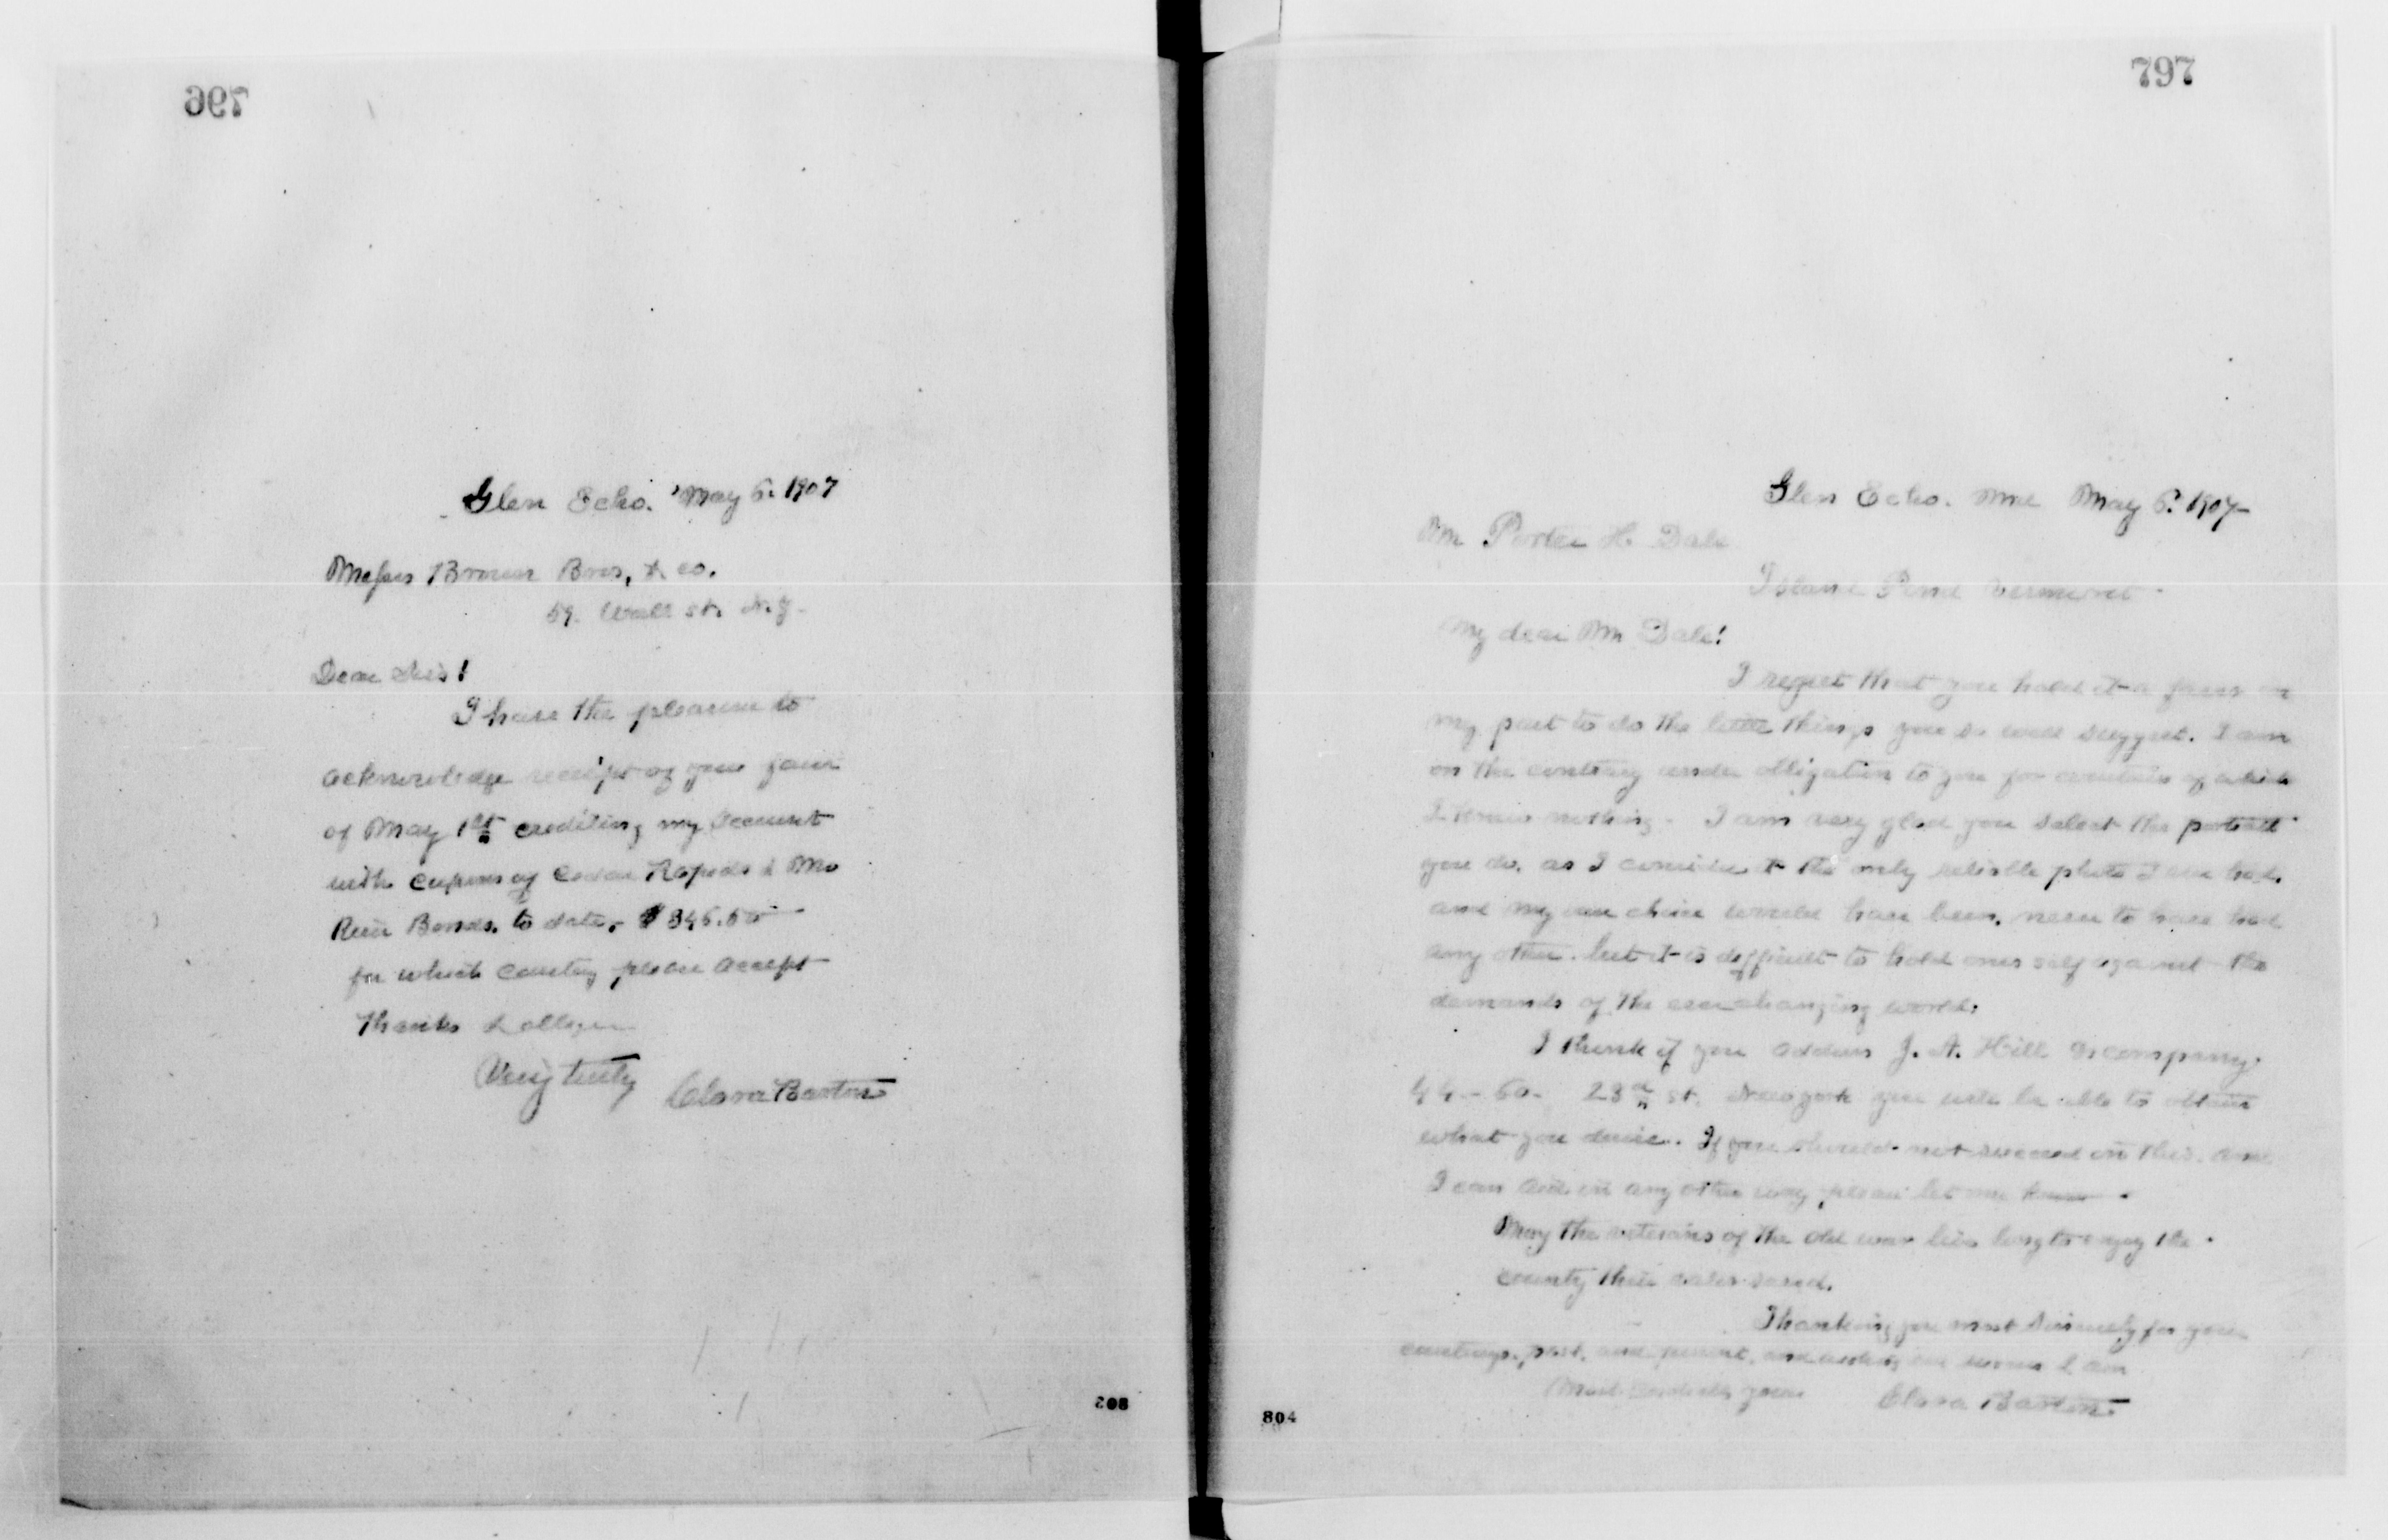 796
Glen Echo. May 6. 1907
Messrs Brown Bros, & co.
59. Wall st. N.Y.
Dear Sirs!
I have the pleasure to
acknowledge receipt of your favor
of May 1st crediting my account
with cupons of Cedar Rapids & Mo
River Bonds. to date, $346.50
for which courtesy please accept
thanks & oblige
Very truly Clara Barton
803
797
Glen Echo. Md May 6. 1907
Mr Porter H. Dale
Island Pond Vermont
My dear Mr Dale!
I regret that you hold it a favor on
my part to do the little things you so well suggest. I am
on the contrary under obligation to you for courtesies of which
I knew nothing. I am very glad you select the portrait
you do, as I consider it the only reliable photo I ever had.
and my own choice would have been, never to have had
any other. but it is difficult to hold ones self against the
demands of the ever changing world.
I think if you address J. A. Hill & company.
44 - 60 - 23d st. New york you will be able to obtain
what you desire. If you should not succeed in this. and
I can aid in any other way please let me know
May the veterans of the old war live long to enjoy the
country their valor saved.
Thanking you most sincerely for your
courtesys, past, and present, I am
Most cordially yours Clara Barton
804